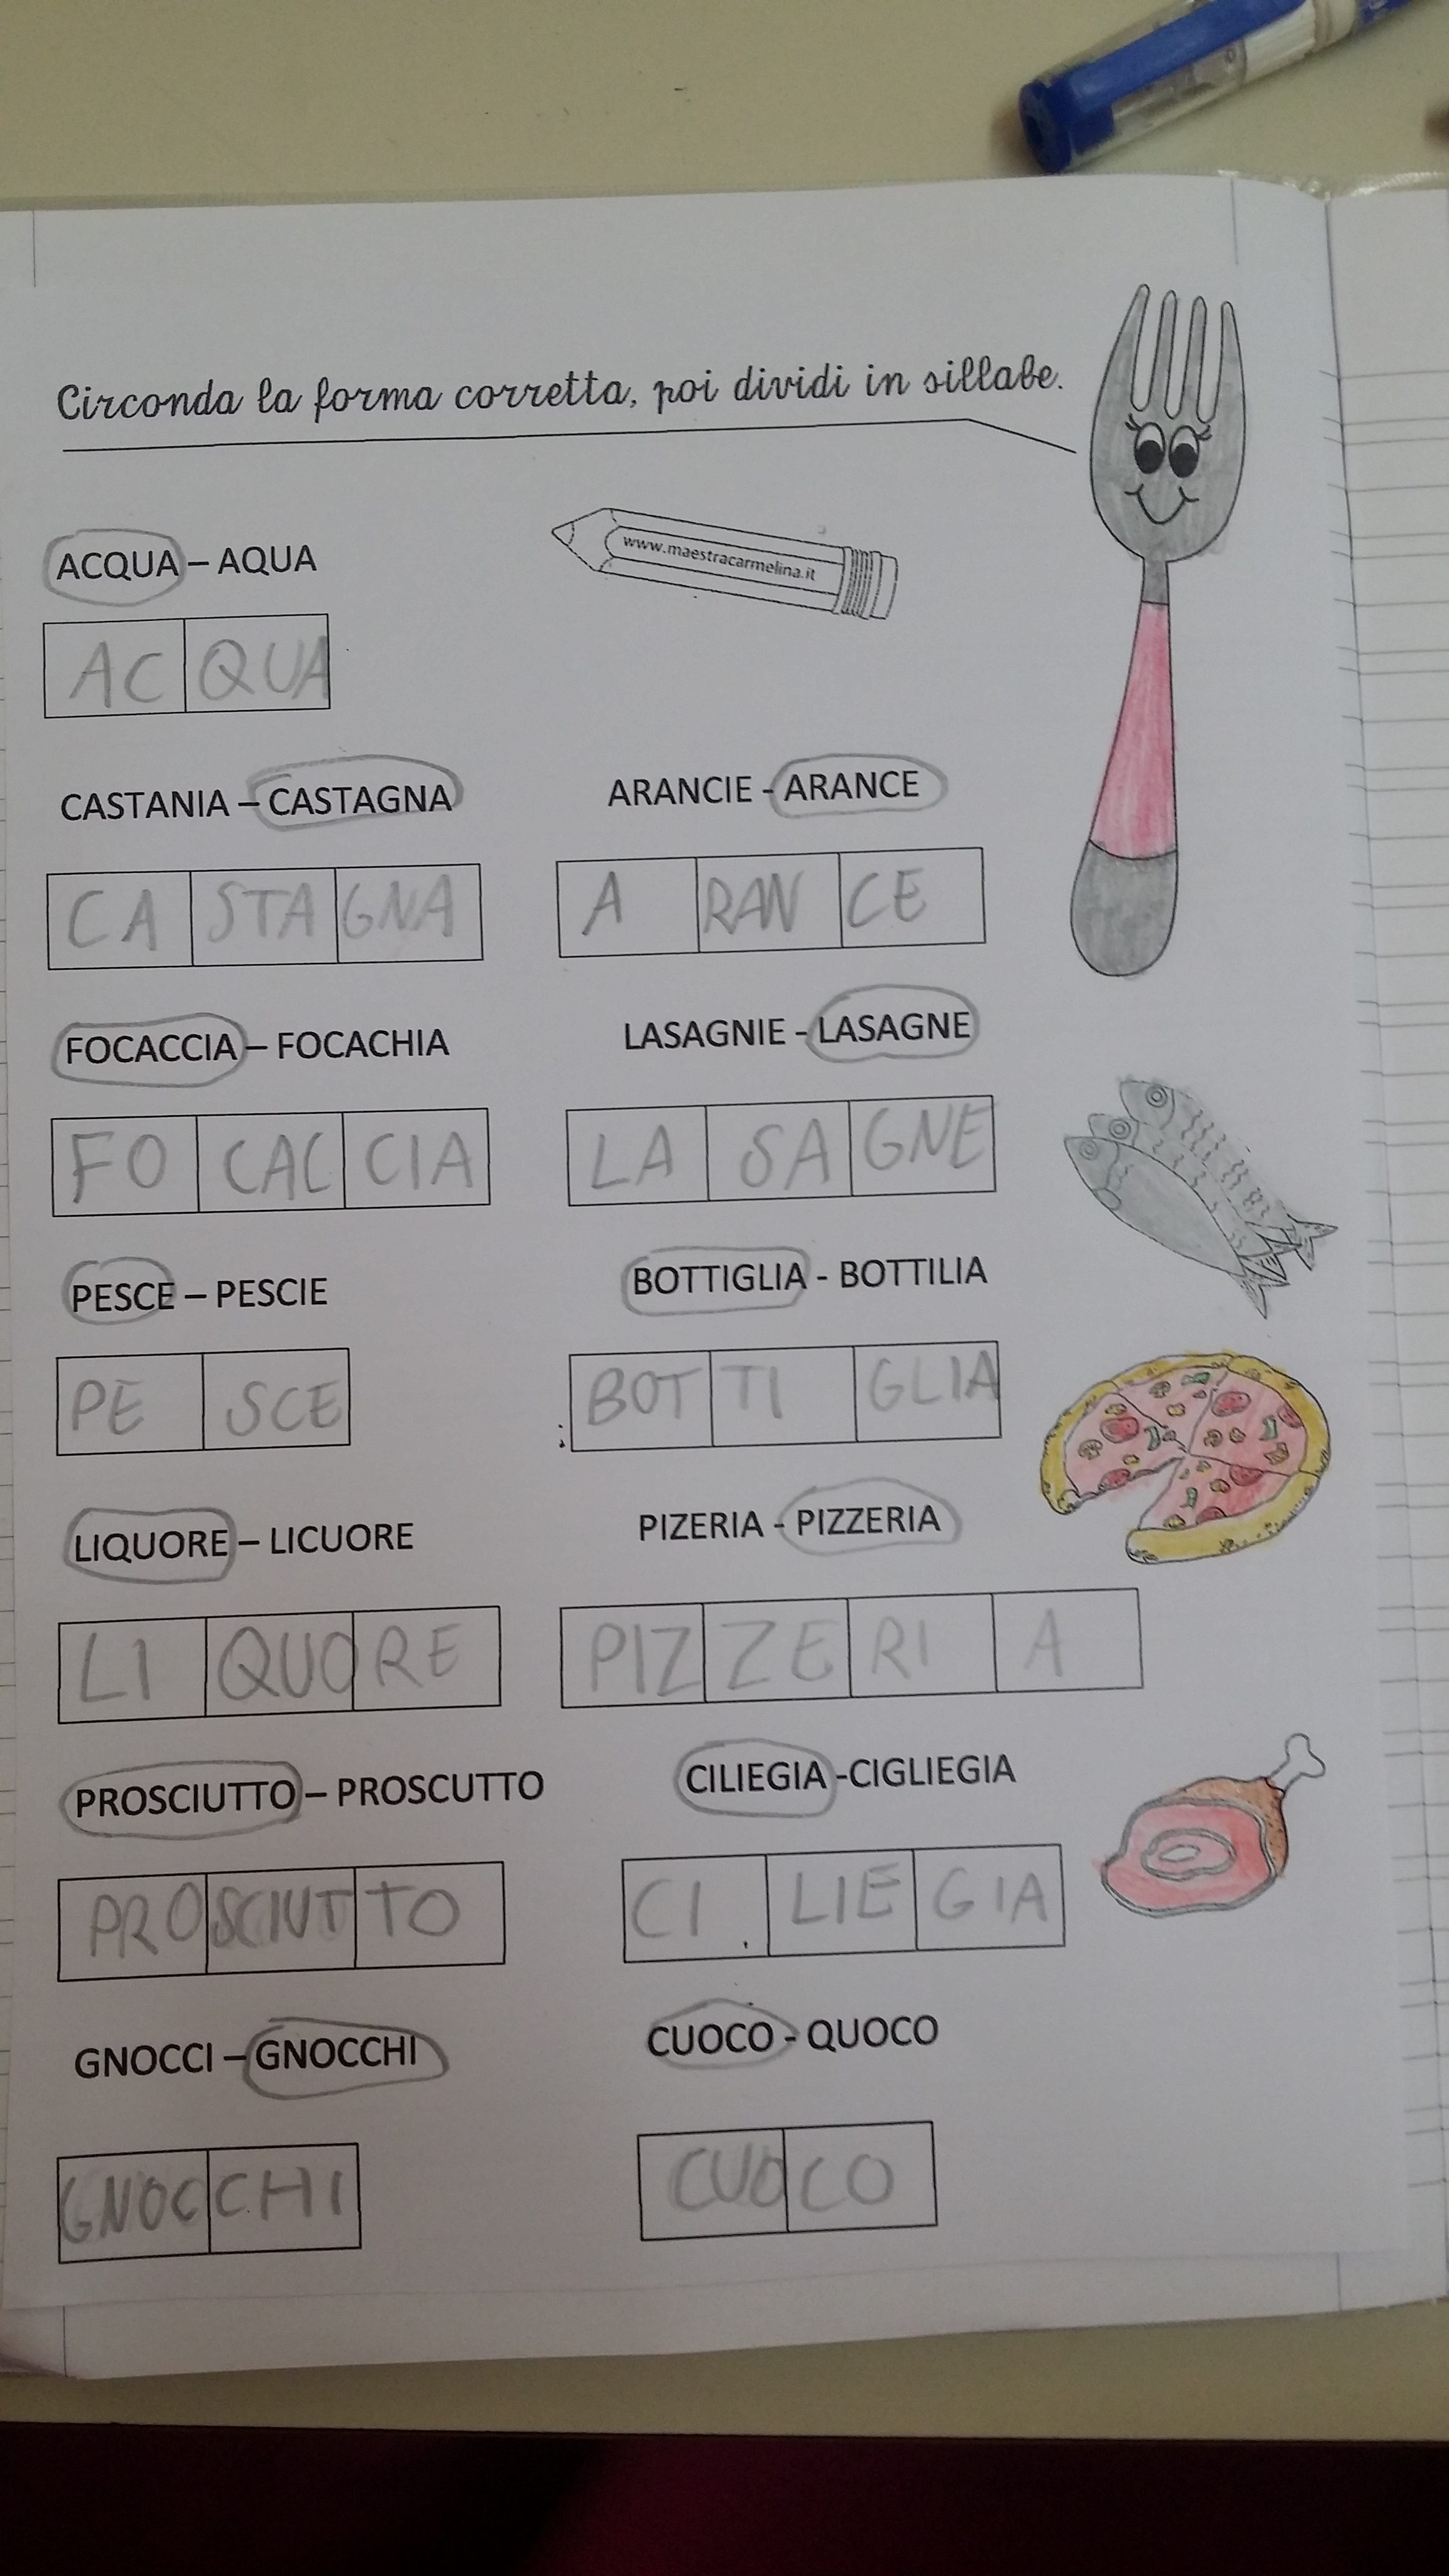 Circonda la forma corretta, poi dividi in sillabe.
www.maestracarmelina.it
ACQUA – AQUA
AC QUA
CASTANIA – CASTAGNA
CA STA GNA
ARANCIE - ARANCE
A RAN CE
FOCACCIA – FOCACHIA
FO CAC CIA
LASAGNIE - LASAGNE
LA SA GNE
PESCE – PESCIE
PE SCE
BOTTIGLIA - BOTTILIA
BOT TI GLIA
LIQUORE – LICUORE
LI QUO RE
PIZERIA - PIZZERIA
PIZ ZE RI A
PROSCIUTTO – PROSCUTTO
PRO SCIUT TO
CILIEGIA -CIGLIEGIA
CI LIE GIA
GNOCCI – GNOCCHI
GNOC CHI
CUOCO - QUOCO
CUO CO